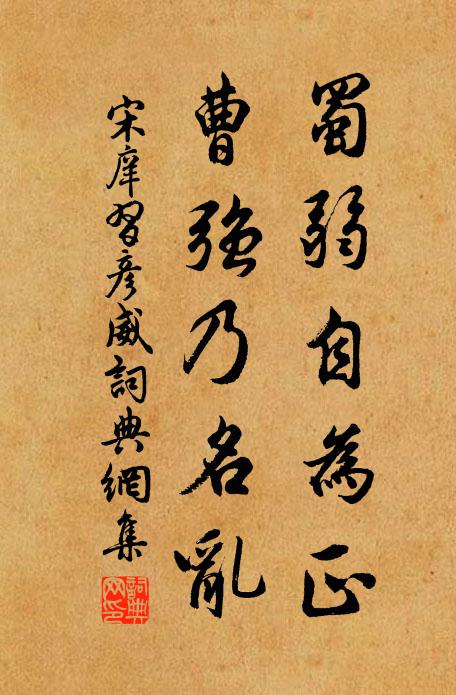 蜀弱自為正
曹強乃名亂
宋庠習彥威詞典網集
詞典
网印